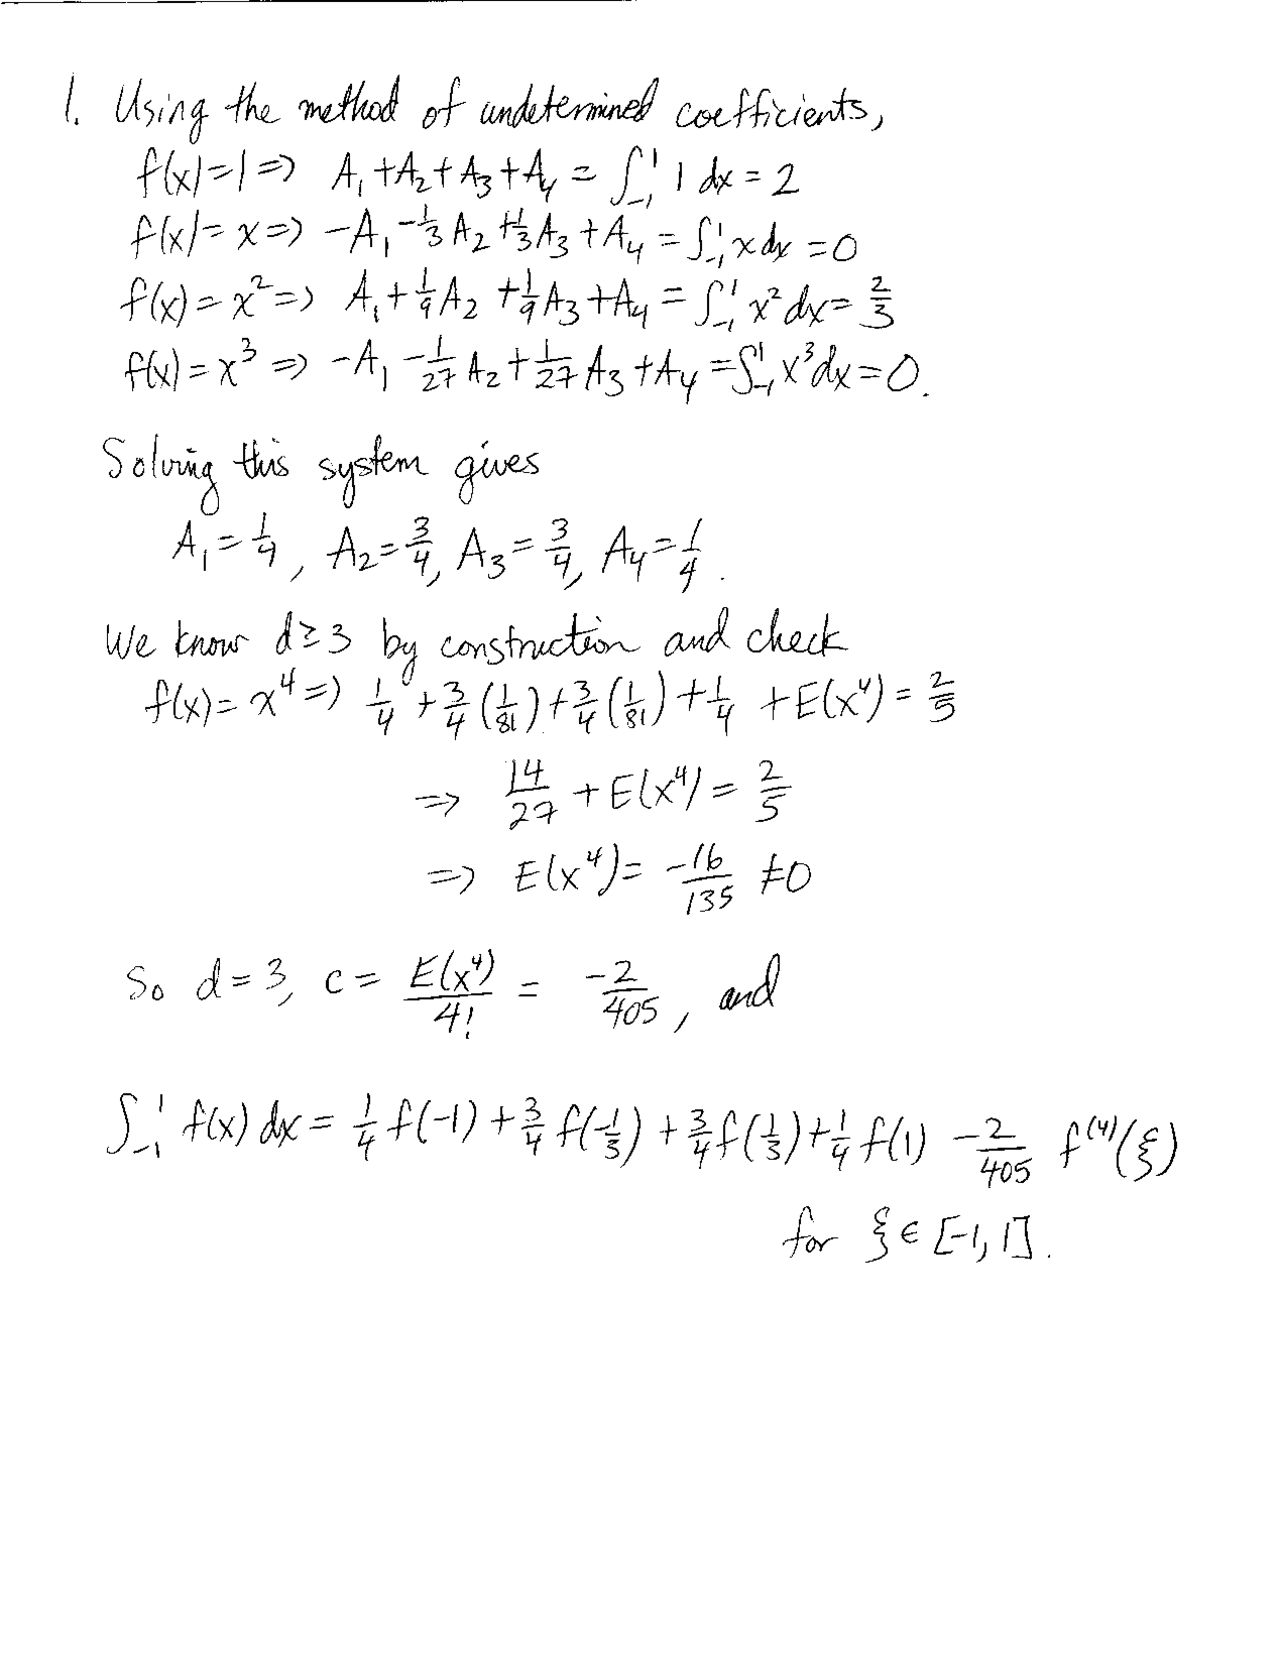 1. Using the method of undetermined coefficients,
f(x)=1 => A₁+A₂+A₃+A₄ = ∫₋₁¹ 1 dx = 2
f(x)=x => -A₁-⅓A₂+⅓A₃+A₄ = ∫₋₁¹ x dx = 0
f(x)=x² => A₁+1/9 A₂+1/9 A₃+A₄ = ∫₋₁¹ x² dx = 2/3
f(x)=x³ => -A₁-1/27 A₂+1/27 A₃+A₄ = ∫₋₁¹ x³ dx = 0.
Solving this system gives
A₁=1/4, A₂=3/4, A₃=3/4, A₄=1/4.
We know d≥3 by construction and check
f(x)=x⁴ => 1/4+3/4(1/81)+3/4(1/81)+1/4+E(x⁴)=2/5
=> 14/27+E(x⁴)=2/5
=> E(x⁴)=-16/135 ≠0
So d=3, c= E(x⁴)/4! = -2/405, and
∫₋₁¹ f(x) dx = 1/4 f(-1)+3/4 f(-1/3)+3/4 f(1/3)+1/4 f(1) -2/405 f⁽⁴⁾(ξ)
for ξ∈[-1,1].